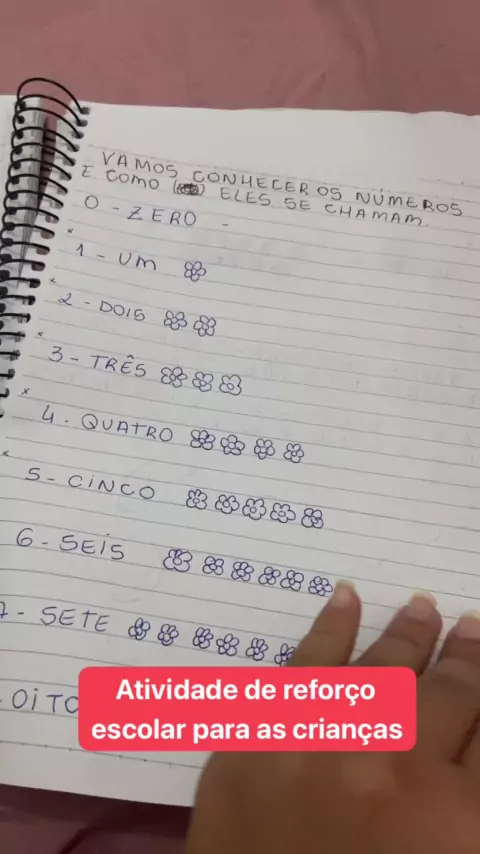 VAMOS CONHECER OS NÚMEROS
E COMO ELES SE CHAMAM.
0 - ZERO -
1 - UM
2 - DOIS
3 - TRÊS
4 - QUATRO
5 - CINCO
6 - SEIS
7 - SETE
OITO
Atividade de reforço
escolar para as crianças